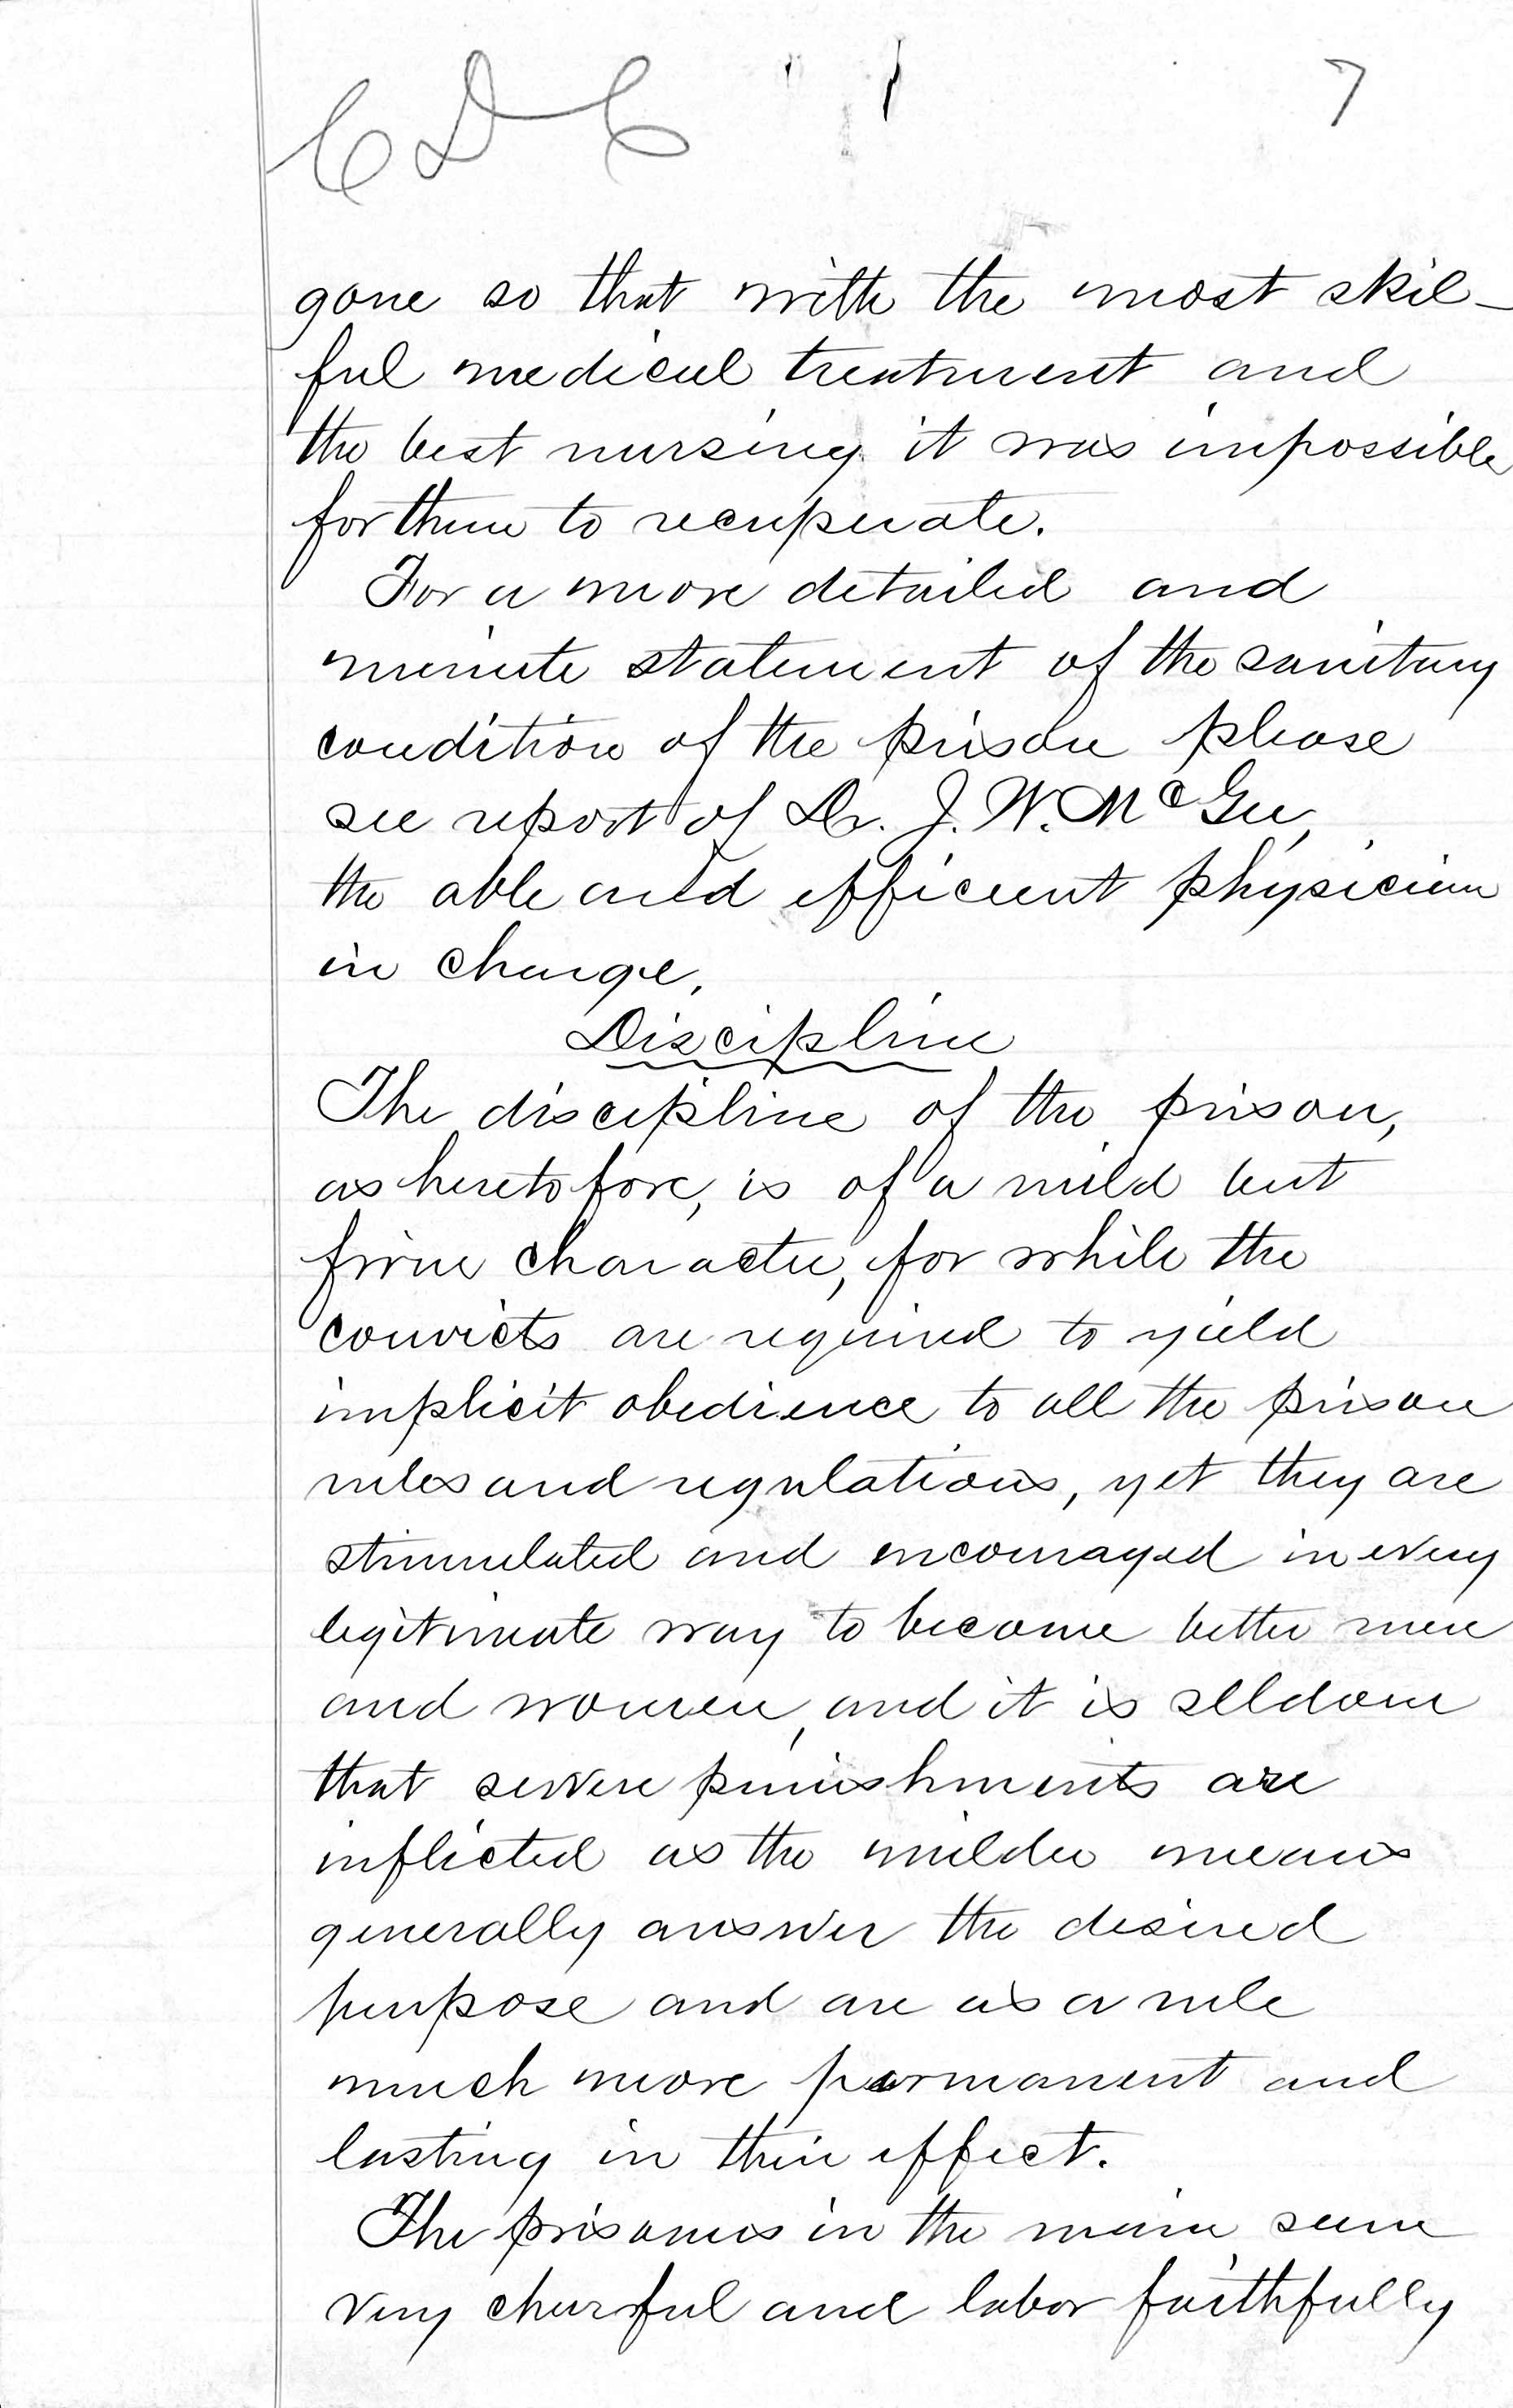 CDC 7
gone so that with the most skil-
ful medical treatment and
the best nursing it was impossible
for them to recuperate.
For a more detailed and
minute statement of the sanitary
condition of the prison please
see report of Dr. J. W. McGee,
the able and efficient physician
in charge.
Discipline
The discipline of the prison,
as heretofore, is of a mild but
firm character, for while the
convicts are required to yield
implicit obedience to all the prison
rules and regulations, yet they are
stimulated and encouraged in every
legitimate way to become better men
and women, and it is seldom
that severe punishments are
inflicted as the milder means
generally answer the desired
purpose and are as a rule
much more permanent and
lasting in their effect.
The prisoners in the main seem
very cheerful and labor faithfully